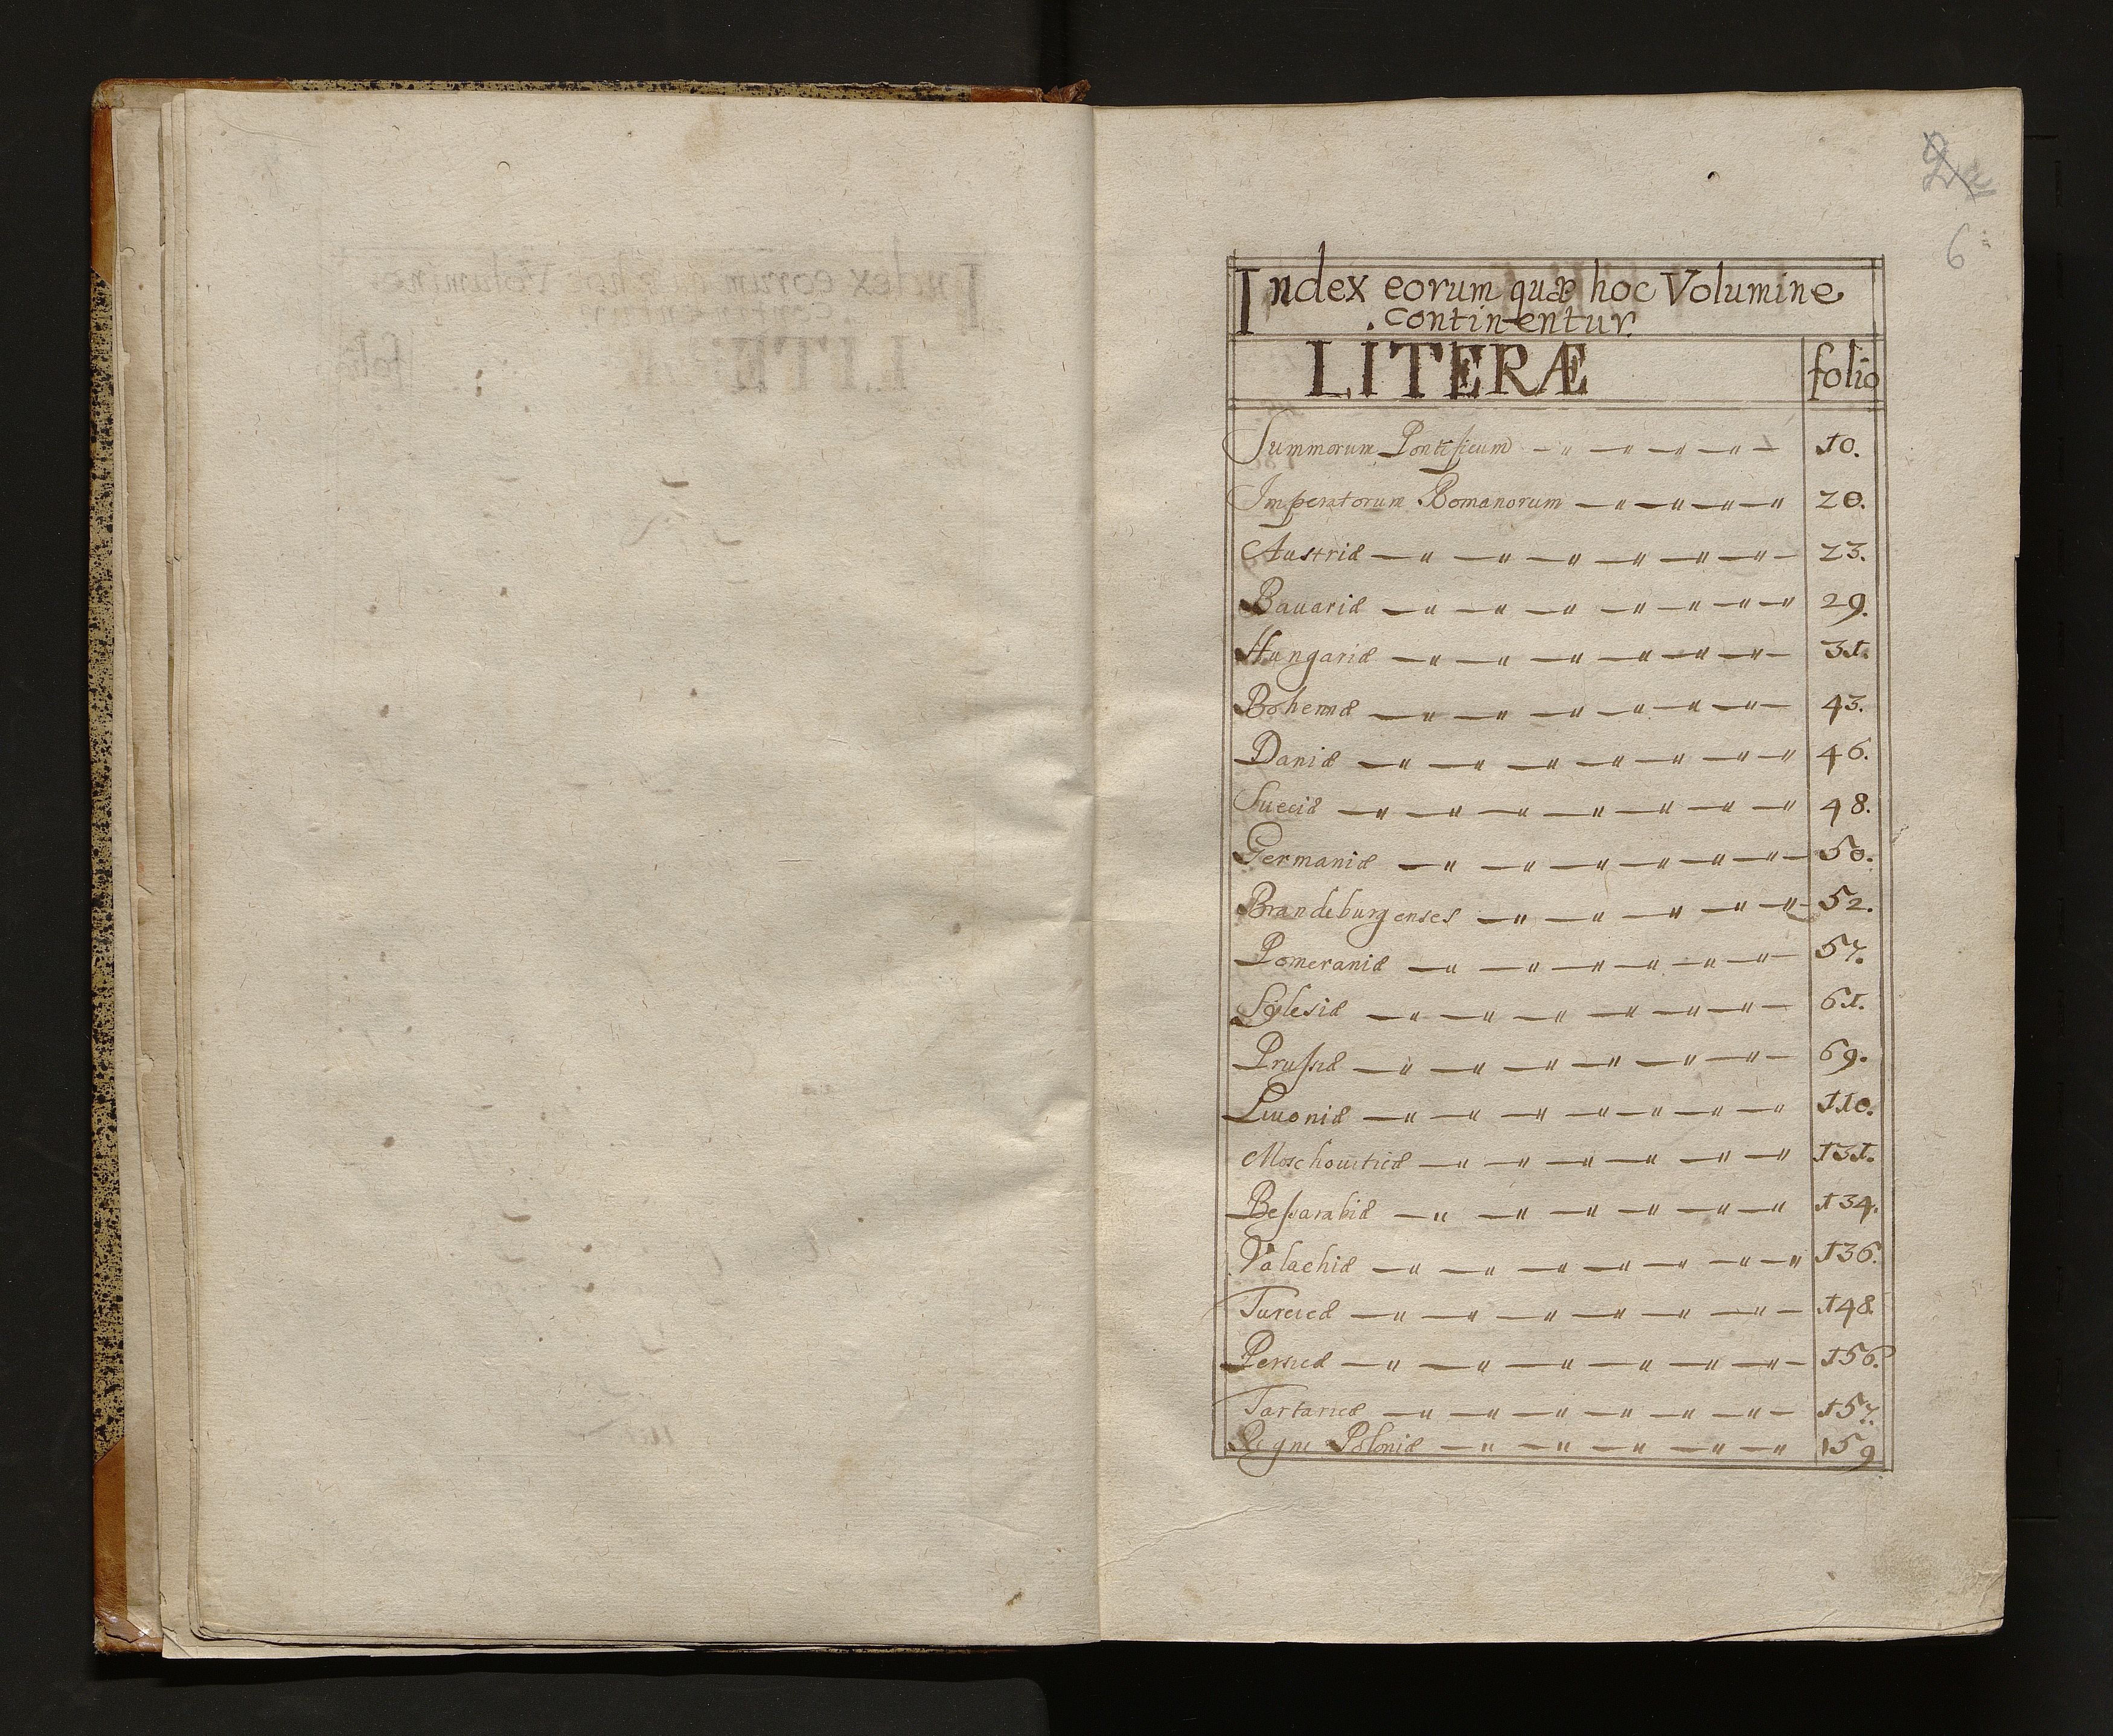 6
Index eorum quæ hoc Volumine
continentur.
LITERÆ folio
Summorum Pontificum 10.
Imperatorum Romanorum 20.
Austriæ 23.
Bauariæ 29.
Hungariæ 31.
Bohemiæ 43.
Daniæ 46.
Sueciæ 48.
Germaniæ 50.
Brandeburgenses 52.
Pomeraniæ 57.
Sylesiæ 61.
Prussiæ 69.
Liuoniæ 110.
Moschouiticæ 131.
Bessarabiæ 134.
Valachiæ 136.
Turcicæ 148
Persicæ 156.
Tartaricæ 157.
Regni Poloniæ 159